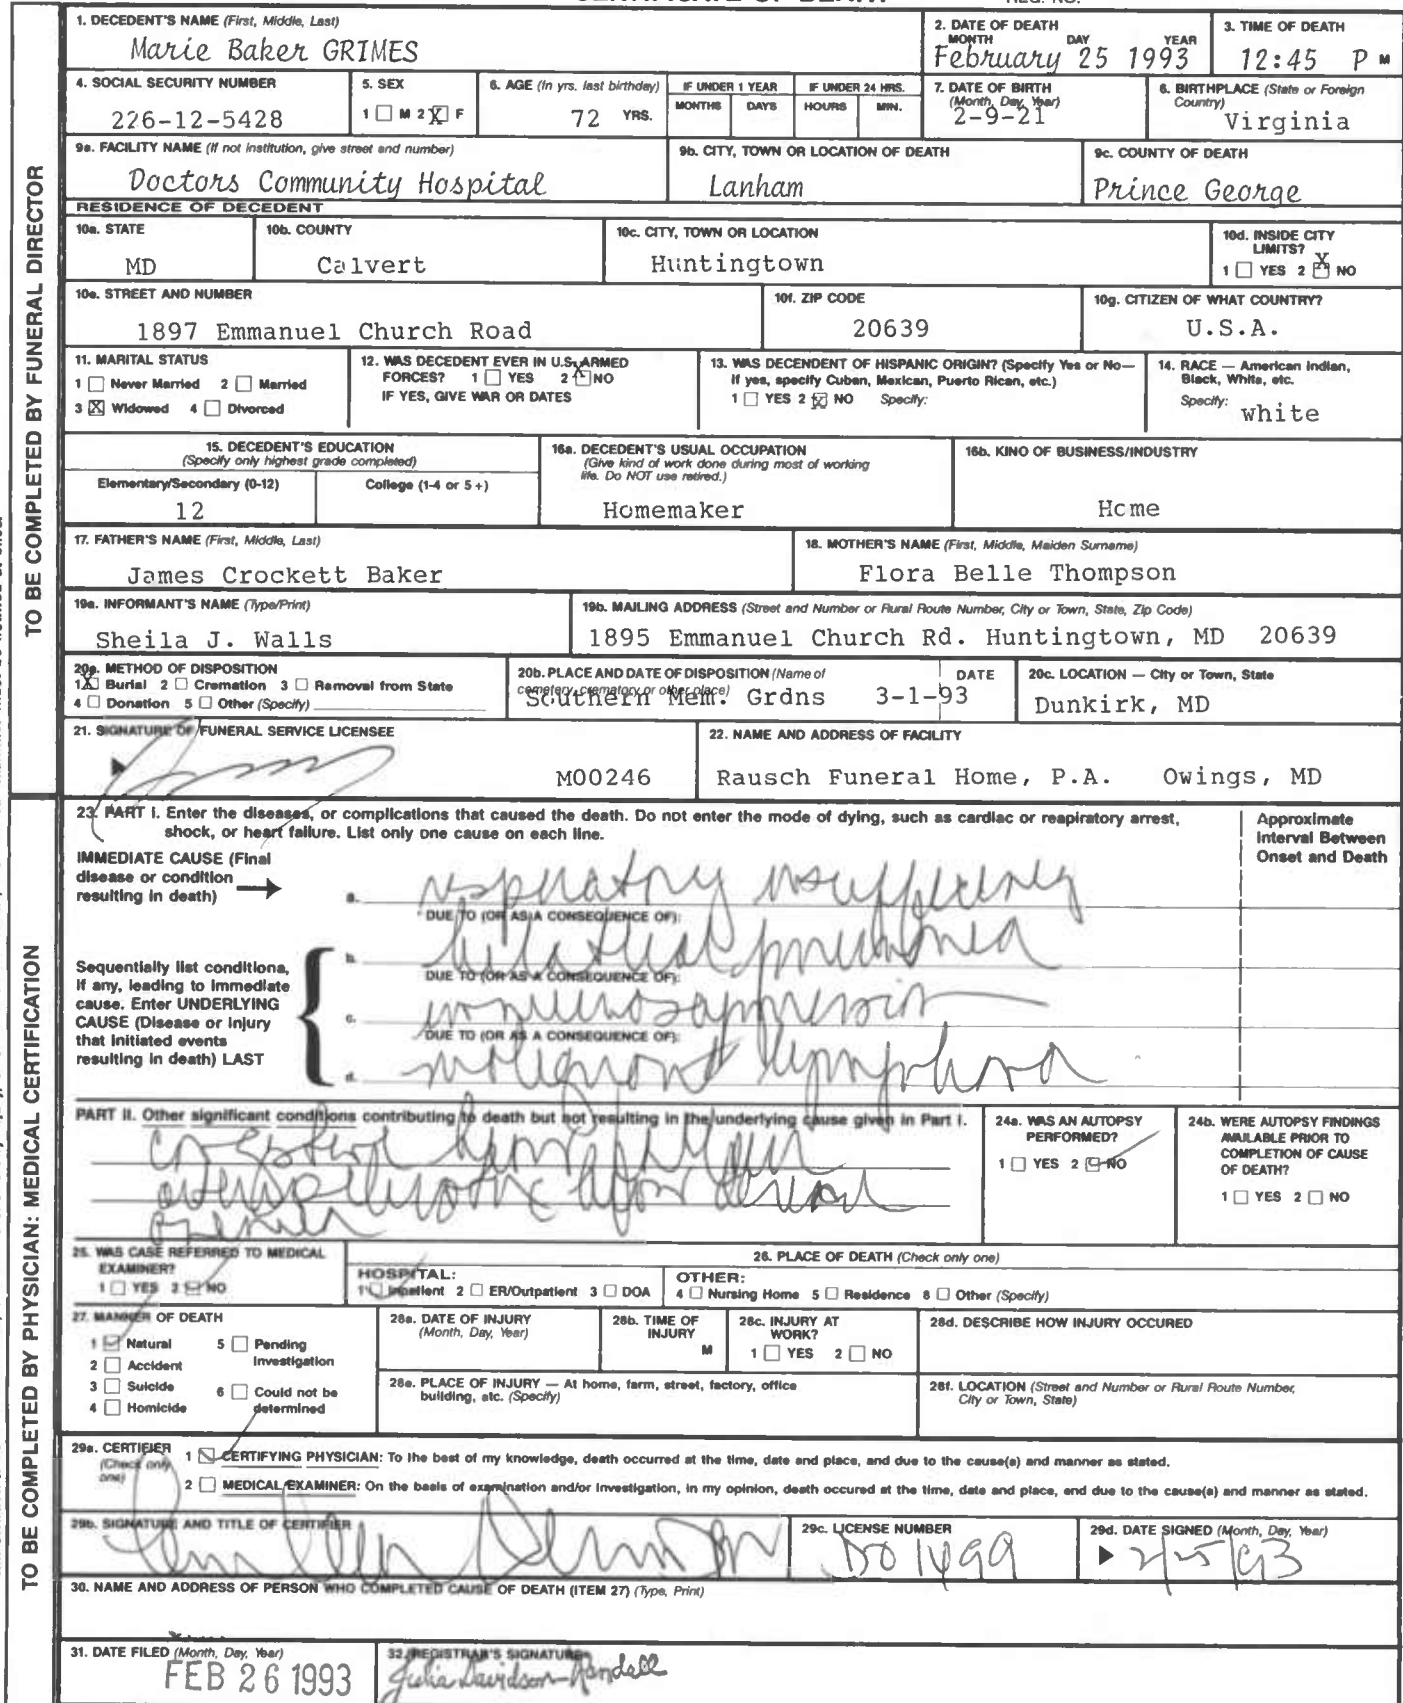 1. DECEDENT'S NAME (First, Middle, Last)
Marie Baker GRIMES
2. DATE OF DEATH
MONTH DAY YEAR
February 25 1993
3. TIME OF DEATH
12:45 P M
4. SOCIAL SECURITY NUMBER
226-12-5428
5. SEX
1 ☐ M 2 ☒ F
6. AGE (In yrs. last birthday)
72 YRS.
IF UNDER 1 YEAR
MONTHS DAYS
IF UNDER 24 HRS.
HOURS MIN.
7. DATE OF BIRTH
(Month, Day, Year)
2-9-21
8. BIRTHPLACE (State or Foreign
Country)
Virginia
9a. FACILITY NAME (If not institution, give street and number)
Doctors Community Hospital
9b. CITY, TOWN OR LOCATION OF DEATH
Lanham
9c. COUNTY OF DEATH
Prince George
RESIDENCE OF DECEDENT
10a. STATE
MD
10b. COUNTY
Calvert
10c. CITY, TOWN OR LOCATION
Huntingtown
10d. INSIDE CITY
LIMITS?
1 ☐ YES 2 ☒ NO
10e. STREET AND NUMBER
1897 Emmanuel Church Road
10f. ZIP CODE
20639
10g. CITIZEN OF WHAT COUNTRY?
U.S.A.
11. MARITAL STATUS
1 ☐ Never Married 2 ☐ Married
3 ☒ Widowed 4 ☐ Divorced
12. WAS DECEDENT EVER IN U.S. ARMED
FORCES? 1 ☐ YES 2 ☒ NO
IF YES, GIVE WAR OR DATES
13. WAS DECENDENT OF HISPANIC ORIGIN? (Specify Yes or No—
If yes, specify Cuban, Mexican, Puerto Rican, etc.)
1 ☐ YES 2 ☒ NO Specify:
14. RACE — American Indian,
Black, White, etc.
Specify: white
15. DECEDENT'S EDUCATION
(Specify only highest grade completed)
Elementary/Secondary (0-12) College (1-4 or 5+)
12
16a. DECEDENT'S USUAL OCCUPATION
(Give kind of work done during most of working
life. Do NOT use retired.)
Homemaker
16b. KIND OF BUSINESS/INDUSTRY
Home
17. FATHER'S NAME (First, Middle, Last)
James Crockett Baker
18. MOTHER'S NAME (First, Middle, Maiden Surname)
Flora Belle Thompson
19a. INFORMANT'S NAME (Type/Print)
Sheila J. Walls
19b. MAILING ADDRESS (Street and Number or Rural Route Number, City or Town, State, Zip Code)
1895 Emmanuel Church Rd. Huntingtown, MD 20639
20a. METHOD OF DISPOSITION
1 ☒ Burial 2 ☐ Cremation 3 ☐ Removal from State
4 ☐ Donation 5 ☐ Other (Specify)
20b. PLACE AND DATE OF DISPOSITION (Name of
cemetery, crematory or other place) DATE
Southern Mem. Grdns 3-1-93
20c. LOCATION — City or Town, State
Dunkirk, MD
21. SIGNATURE OF FUNERAL SERVICE LICENSEE
M00246
22. NAME AND ADDRESS OF FACILITY
Rausch Funeral Home, P.A. Owings, MD
TO BE COMPLETED BY FUNERAL DIRECTOR
23. PART I. Enter the diseases, or complications that caused the death. Do not enter the mode of dying, such as cardiac or respiratory arrest,
shock, or heart failure. List only one cause on each line.
Approximate
Interval Between
Onset and Death
IMMEDIATE CAUSE (Final
disease or condition
resulting in death)
a. respiratory insufficiency
DUE TO (OR AS A CONSEQUENCE OF):
b. bilateral pneumonia
DUE TO (OR AS A CONSEQUENCE OF):
c. immunosuppression
DUE TO (OR AS A CONSEQUENCE OF):
d. malignant lymphoma
Sequentially list conditions,
if any, leading to immediate
cause. Enter UNDERLYING
CAUSE (Disease or injury
that initiated events
resulting in death) LAST
PART II. Other significant conditions contributing to death but not resulting in the underlying cause given in Part I.
congestive heart failure
24a. WAS AN AUTOPSY
PERFORMED?
1 ☐ YES 2 ☑ NO
24b. WERE AUTOPSY FINDINGS
AVAILABLE PRIOR TO
COMPLETION OF CAUSE
OF DEATH?
1 ☐ YES 2 ☐ NO
25. WAS CASE REFERRED TO MEDICAL
EXAMINER?
1 ☐ YES 2 ☑ NO
26. PLACE OF DEATH (Check only one)
HOSPITAL:
1 ☑ Inpatient 2 ☐ ER/Outpatient 3 ☐ DOA
OTHER:
4 ☐ Nursing Home 5 ☐ Residence 8 ☐ Other (Specify)
27. MANNER OF DEATH
1 ☑ Natural 5 ☐ Pending
Investigation
2 ☐ Accident
3 ☐ Suicide 6 ☐ Could not be
determined
4 ☐ Homicide
28a. DATE OF INJURY
(Month, Day, Year)
28b. TIME OF
INJURY
M
28c. INJURY AT
WORK?
1 ☐ YES 2 ☐ NO
28d. DESCRIBE HOW INJURY OCCURED
28e. PLACE OF INJURY — At home, farm, street, factory, office
building, etc. (Specify)
28f. LOCATION (Street and Number or Rural Route Number,
City or Town, State)
29a. CERTIFIER
(Check only
one)
1 ☑ CERTIFYING PHYSICIAN: To the best of my knowledge, death occurred at the time, date and place, and due to the cause(s) and manner as stated.
2 ☐ MEDICAL EXAMINER: On the basis of examination and/or investigation, in my opinion, death occured at the time, date and place, and due to the cause(s) and manner as stated.
29b. SIGNATURE AND TITLE OF CERTIFIER
29c. LICENSE NUMBER
29d. DATE SIGNED (Month, Day, Year)
2/25/93
30. NAME AND ADDRESS OF PERSON WHO COMPLETED CAUSE OF DEATH (ITEM 27) (Type, Print)
31. DATE FILED (Month, Day, Year)
FEB 26 1993
32. REGISTRAR'S SIGNATURE
Julia Davidson-Randall
TO BE COMPLETED BY PHYSICIAN: MEDICAL CERTIFICATION